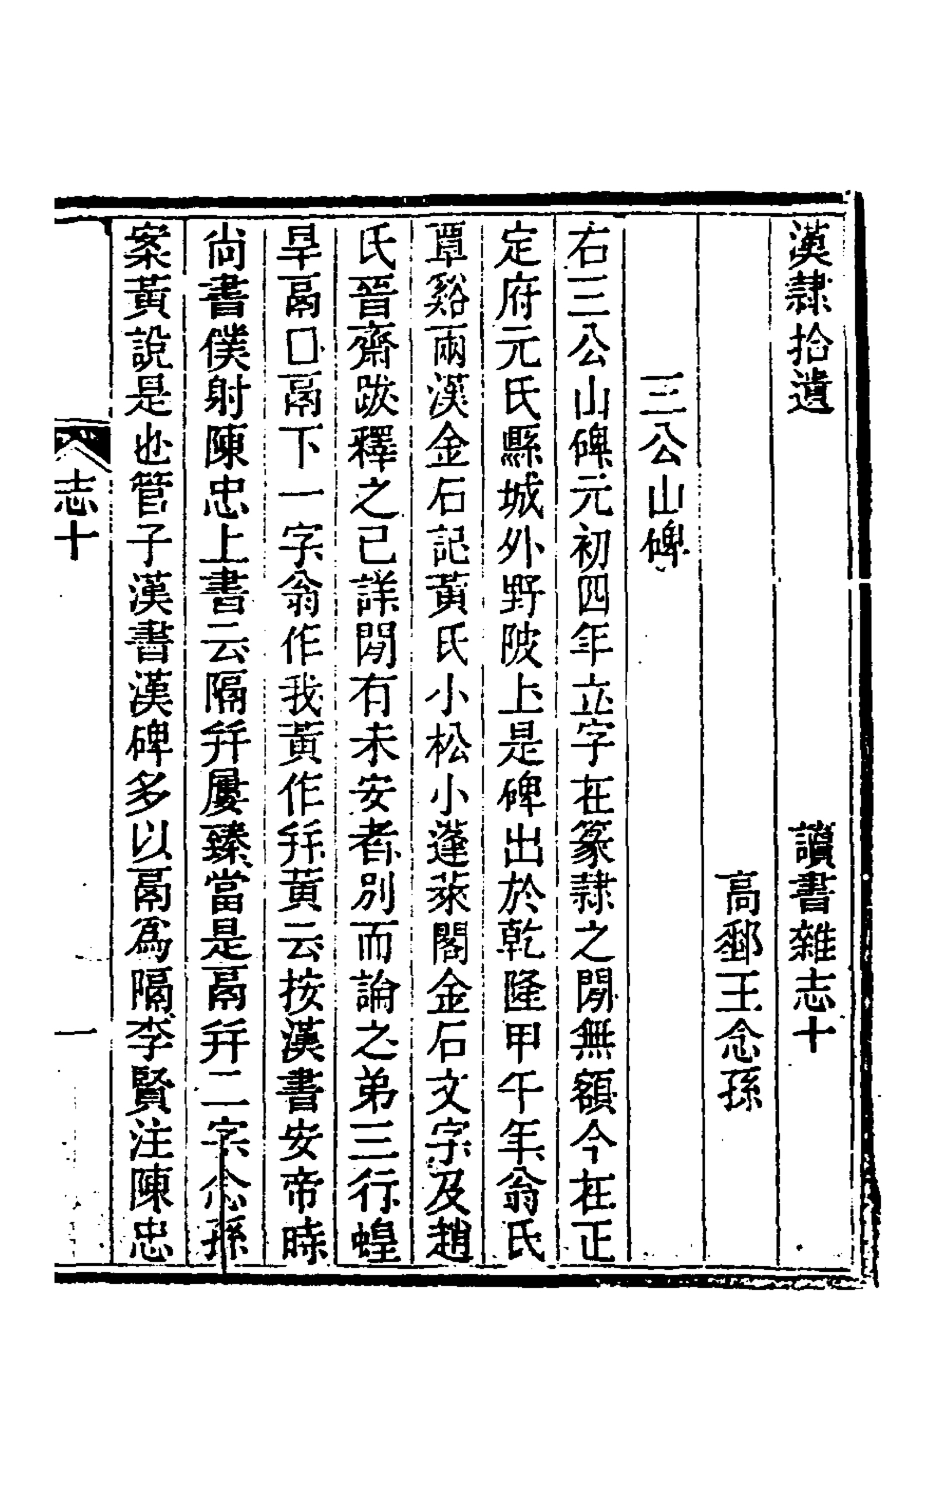 漢隸拾遺　讀書雜志十
高郵王念孫
三公山碑
右三公山碑元初四年立字在篆隸之閒無額今在正
定府元氏縣城外野陂上是碑出於乾隆甲午年翁氏
覃谿兩漢金石記黃氏小松小蓬萊閣金石文字及趙
氏晉齋跋釋之已詳閒有未安者別而論之弟三行蝗
旱鬲囗鬲下一字翁作我黃作幷黃云按漢書安帝時
尚書僕射陳忠上書云隔幷屢臻當是鬲幷二字念孫
案黃說是也管子漢書漢碑多以鬲爲隔李賢注陳忠
志十
一